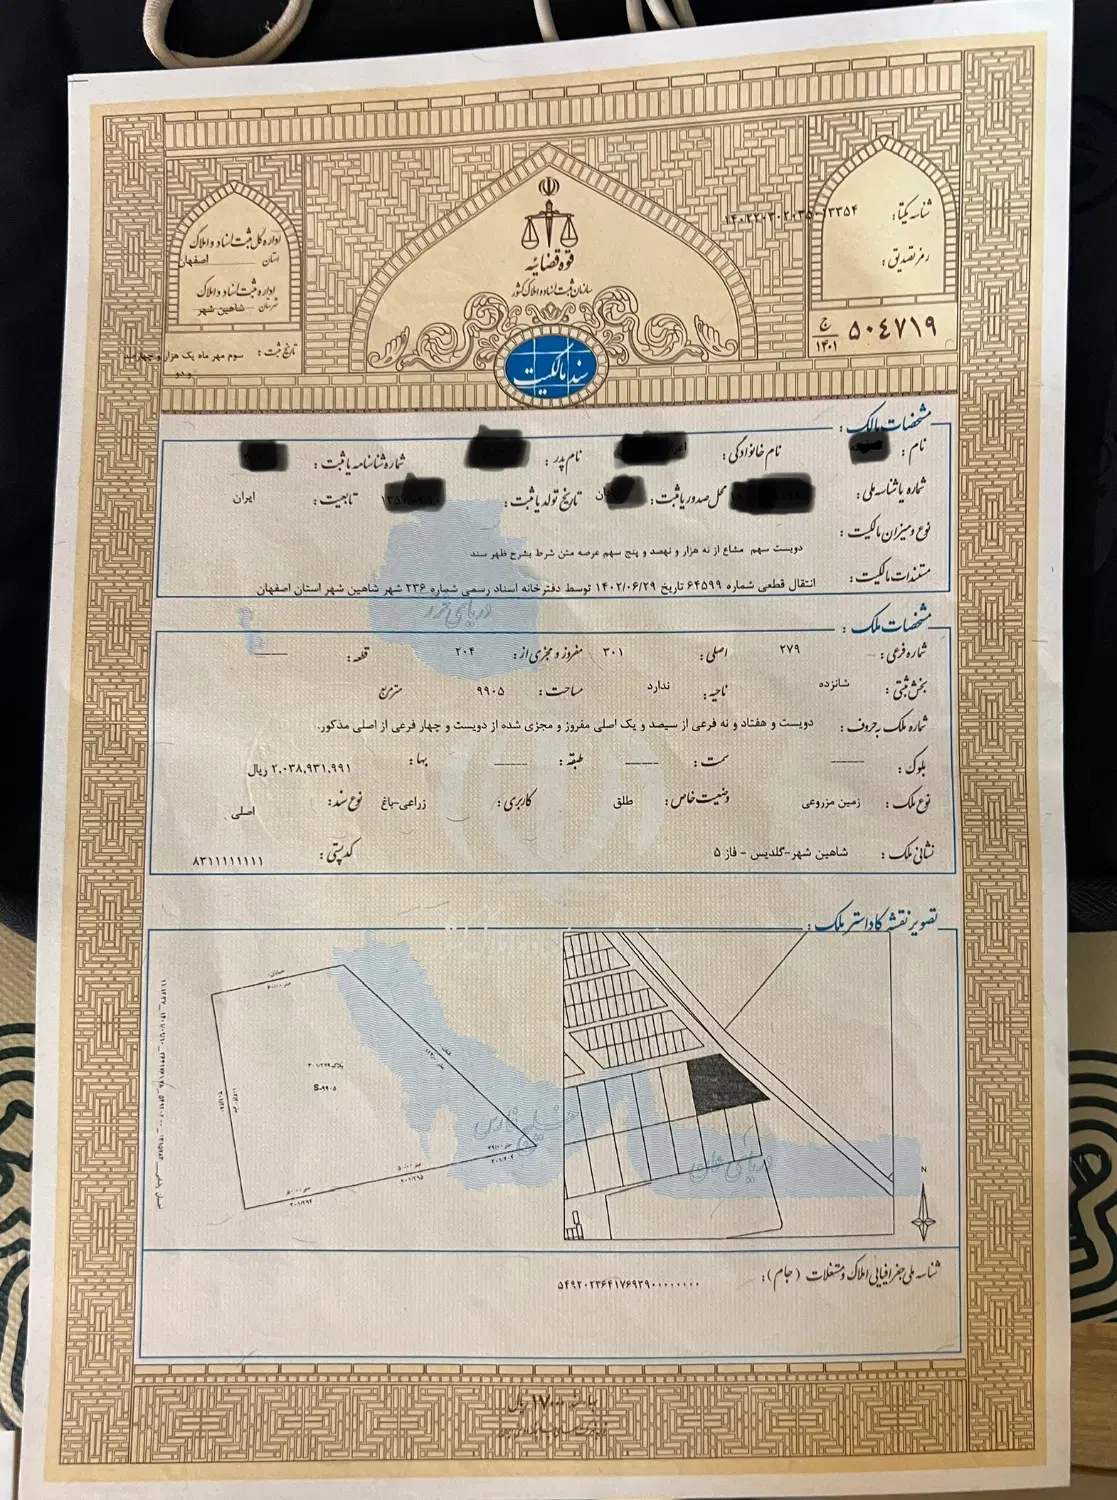 شناسه یکتا: ۱۴۰۲۲۰۳۰۲۰۳۵۰۱۳۳۵۴
رمز تصدیق:
۵۰۴۷۱۹ ج ۱۴۰۱
قوه قضائیه
سازمان ثبت اسناد و املاک کشور
اداره کل ثبت اسناد و املاک
استان اصفهان
اداره ثبت اسناد و املاک
شهرستان شاهین شهر
تاریخ ثبت: سوم مهر ماه یک هزار و چهارصد و دو
سند مالکیت
مشخصات مالک:
نام: نام خانوادگی: نام پدر: شماره شناسنامه یا ثبت:
شماره یا شناسه ملی: محل صدور یا ثبت: تاریخ تولد یا ثبت: تابعیت: ایران
نوع و میزان مالکیت:
دویست سهم مشاع از نه هزار و نهصد و پنج سهم عرصه متن شرط بشرح ظهر سند
مستندات مالکیت: انتقال قطعی شماره ۶۴۵۹۹ تاریخ ۱۴۰۲/۰۶/۲۹ توسط دفترخانه اسناد رسمی شماره ۲۳۶ شهر شاهین شهر استان اصفهان
دریای خزر
مشخصات ملک:
شماره فرعی: ۲۷۹ اصلی: ۳۰۱ مفروز و مجزی از: ۲۰۴ قطعه:
بخش ثبتی: شانزده ناحیه: ندارد مساحت: ۹۹۰۵ مترمربع
شماره ملک به حروف: دویست و هفتاد و نه فرعی از سیصد و یک اصلی مفروز و مجزی شده از دویست و چهار فرعی از اصلی مذکور.
بلوک: سمت: طبقه: بها: ۲,۰۳۸,۹۳۱,۹۹۱ ریال
نوع ملک: زمین مزروعی وضعیت خاص: طلق کاربری: زراعی-باغ نوع سند: اصلی
نشانی ملک: شاهین شهر-گلدیس - فاز ۵ کدپستی: ۸۳۱۱۱۱۱۱۱۱
تصویر نقشه کاداستر ملک:
پلاک ۳۰۱/۲۷۹
S=۹۹۰۵
خلیج فارس
دریای عمان
N
شناسه ملی جغرافیایی املاک و مستغلات (جام): ۵۴۹۲۰۲۳۶۴۱۷۶۹۳۹۰۰۰۰۰۰۰۰